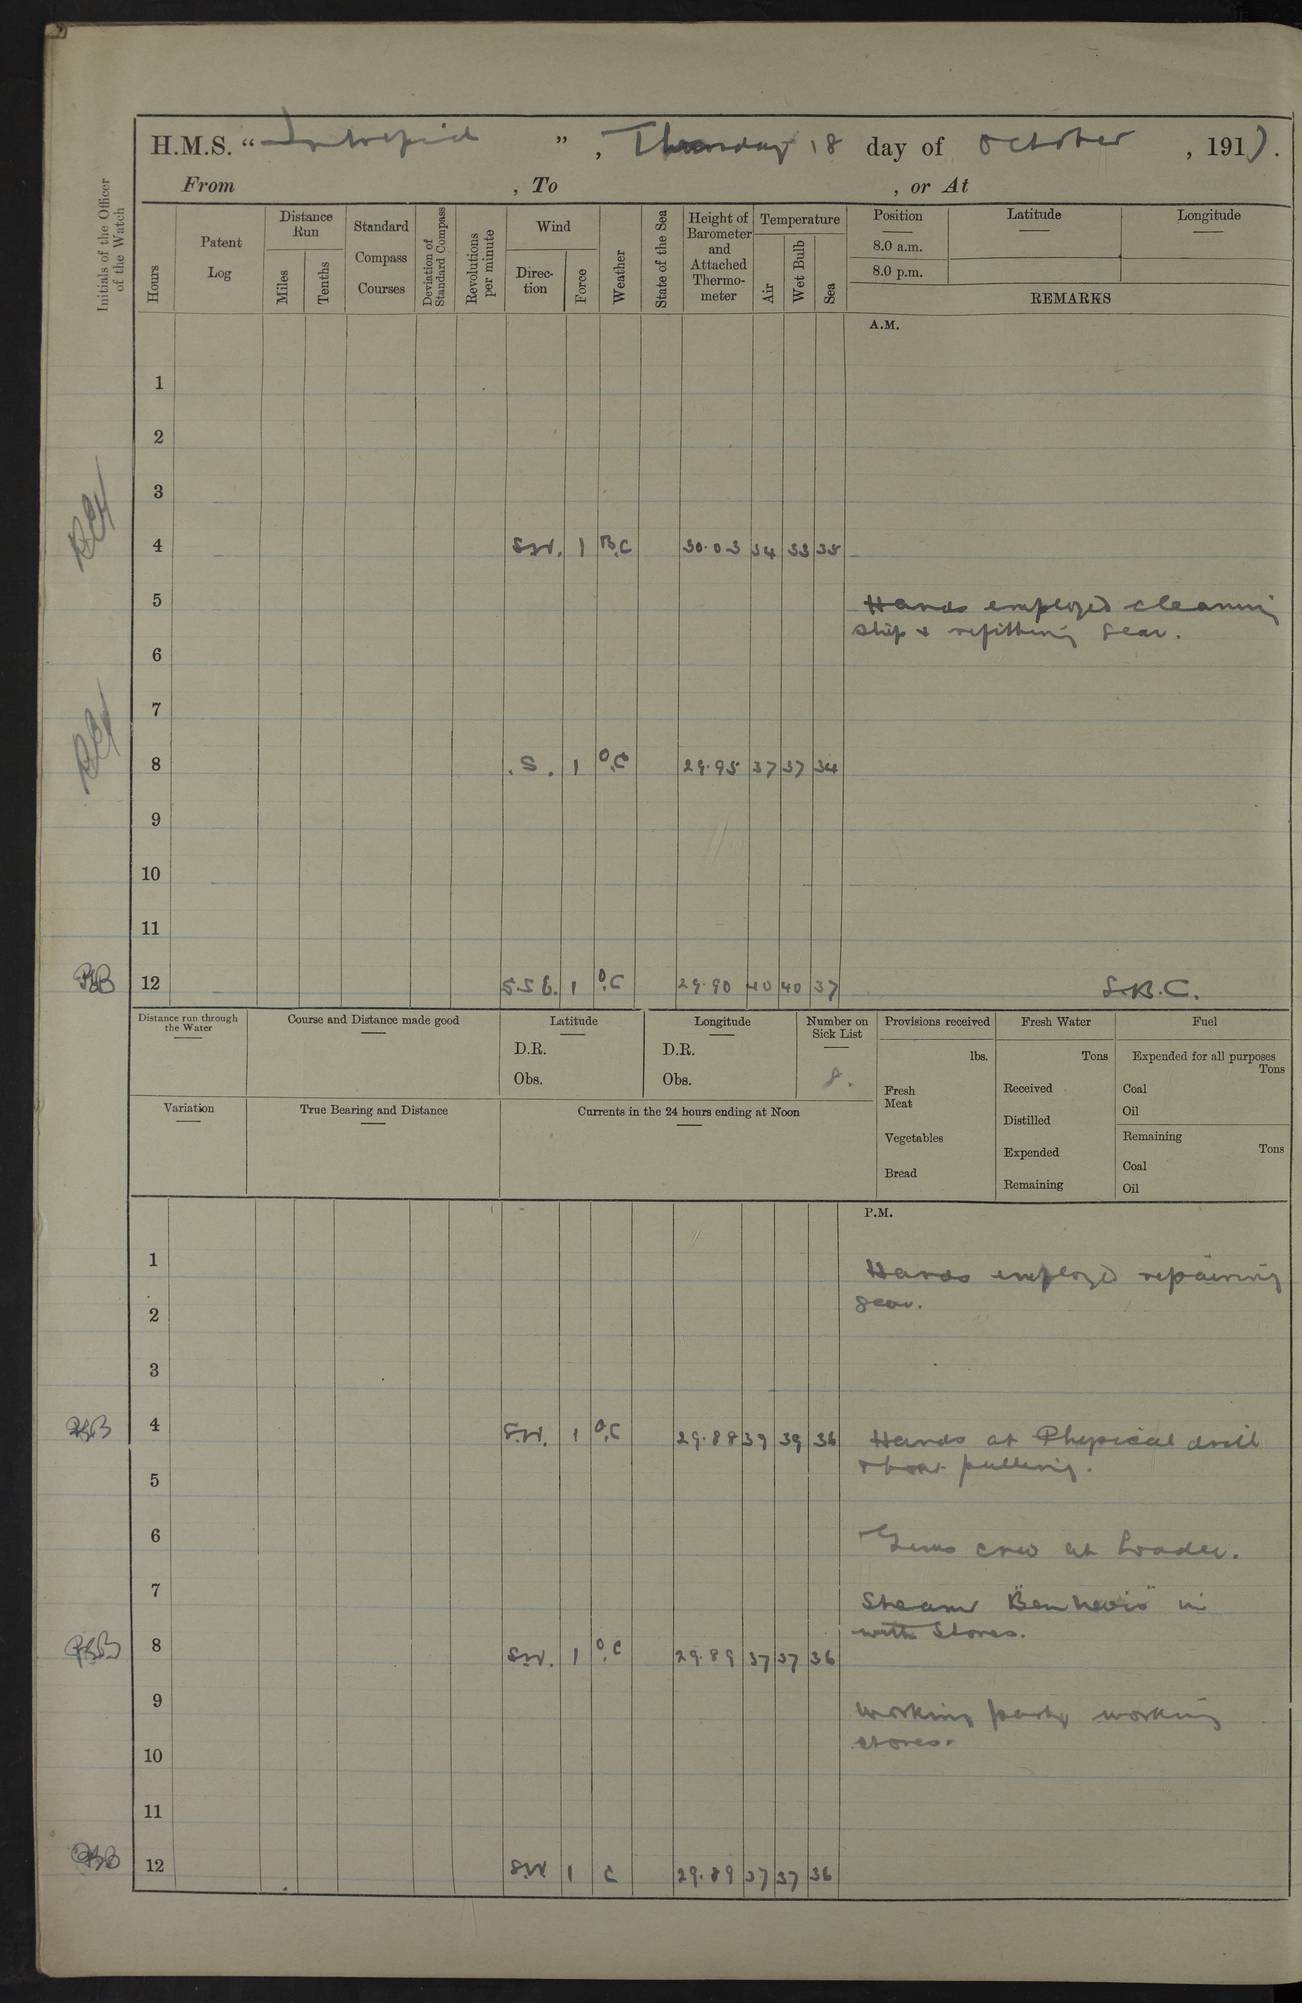 H.M.S. “Intrepid”, Thursday 18 day of October, 1917.
From , To , or At
Initials of the Officer of the Watch
Hours
Patent Log
Distance Run
Miles
Tenths
Standard Compass Courses
Deviation of Standard Compass
Revolutions per minute
Wind
Direc-tion
Force
Weather
State of the Sea
Height of Barometer and Attached Thermo-meter
Temperature
Air
Wet Bulb
Sea
Position
8.0 a.m.
8.0 p.m.
Latitude
Longitude
REMARKS
A.M.
1
2
3
4 S.W. 1 B.C 30.03 34 33 35
5 Hands employed cleaning
ship & refitting gear.
6
7
8 S. 1 O.C 29.95 37 37 34
9
10
11
12 S.S.E. 1 O.C 29.90 40 40 37 S.B.C.
Distance run through the Water
Course and Distance made good
Latitude
D.R.
Obs.
Longitude
D.R.
Obs.
Number on Sick List
8.
Provisions received
lbs.
Fresh Meat
Vegetables
Bread
Fresh Water
Tons
Received
Distilled
Expended
Remaining
Fuel
Expended for all purposes
Tons
Coal
Oil
Remaining
Tons
Coal
Oil
Variation
True Bearing and Distance
Currents in the 24 hours ending at Noon
P.M.
1 Hands employed repairing
gear.
2
3
4 S.W. 1 O.C 29.88 39 39 36 Hands at Physical drill
& boat pulling.
5
6 Guns crew at loader.
7 Steamer "Ben nevis" in
with stores.
8 S.W. 1 O.C 29.89 37 37 36
9 working party working
stores.
10
11
12 S.W 1 C 29.89 37 37 36